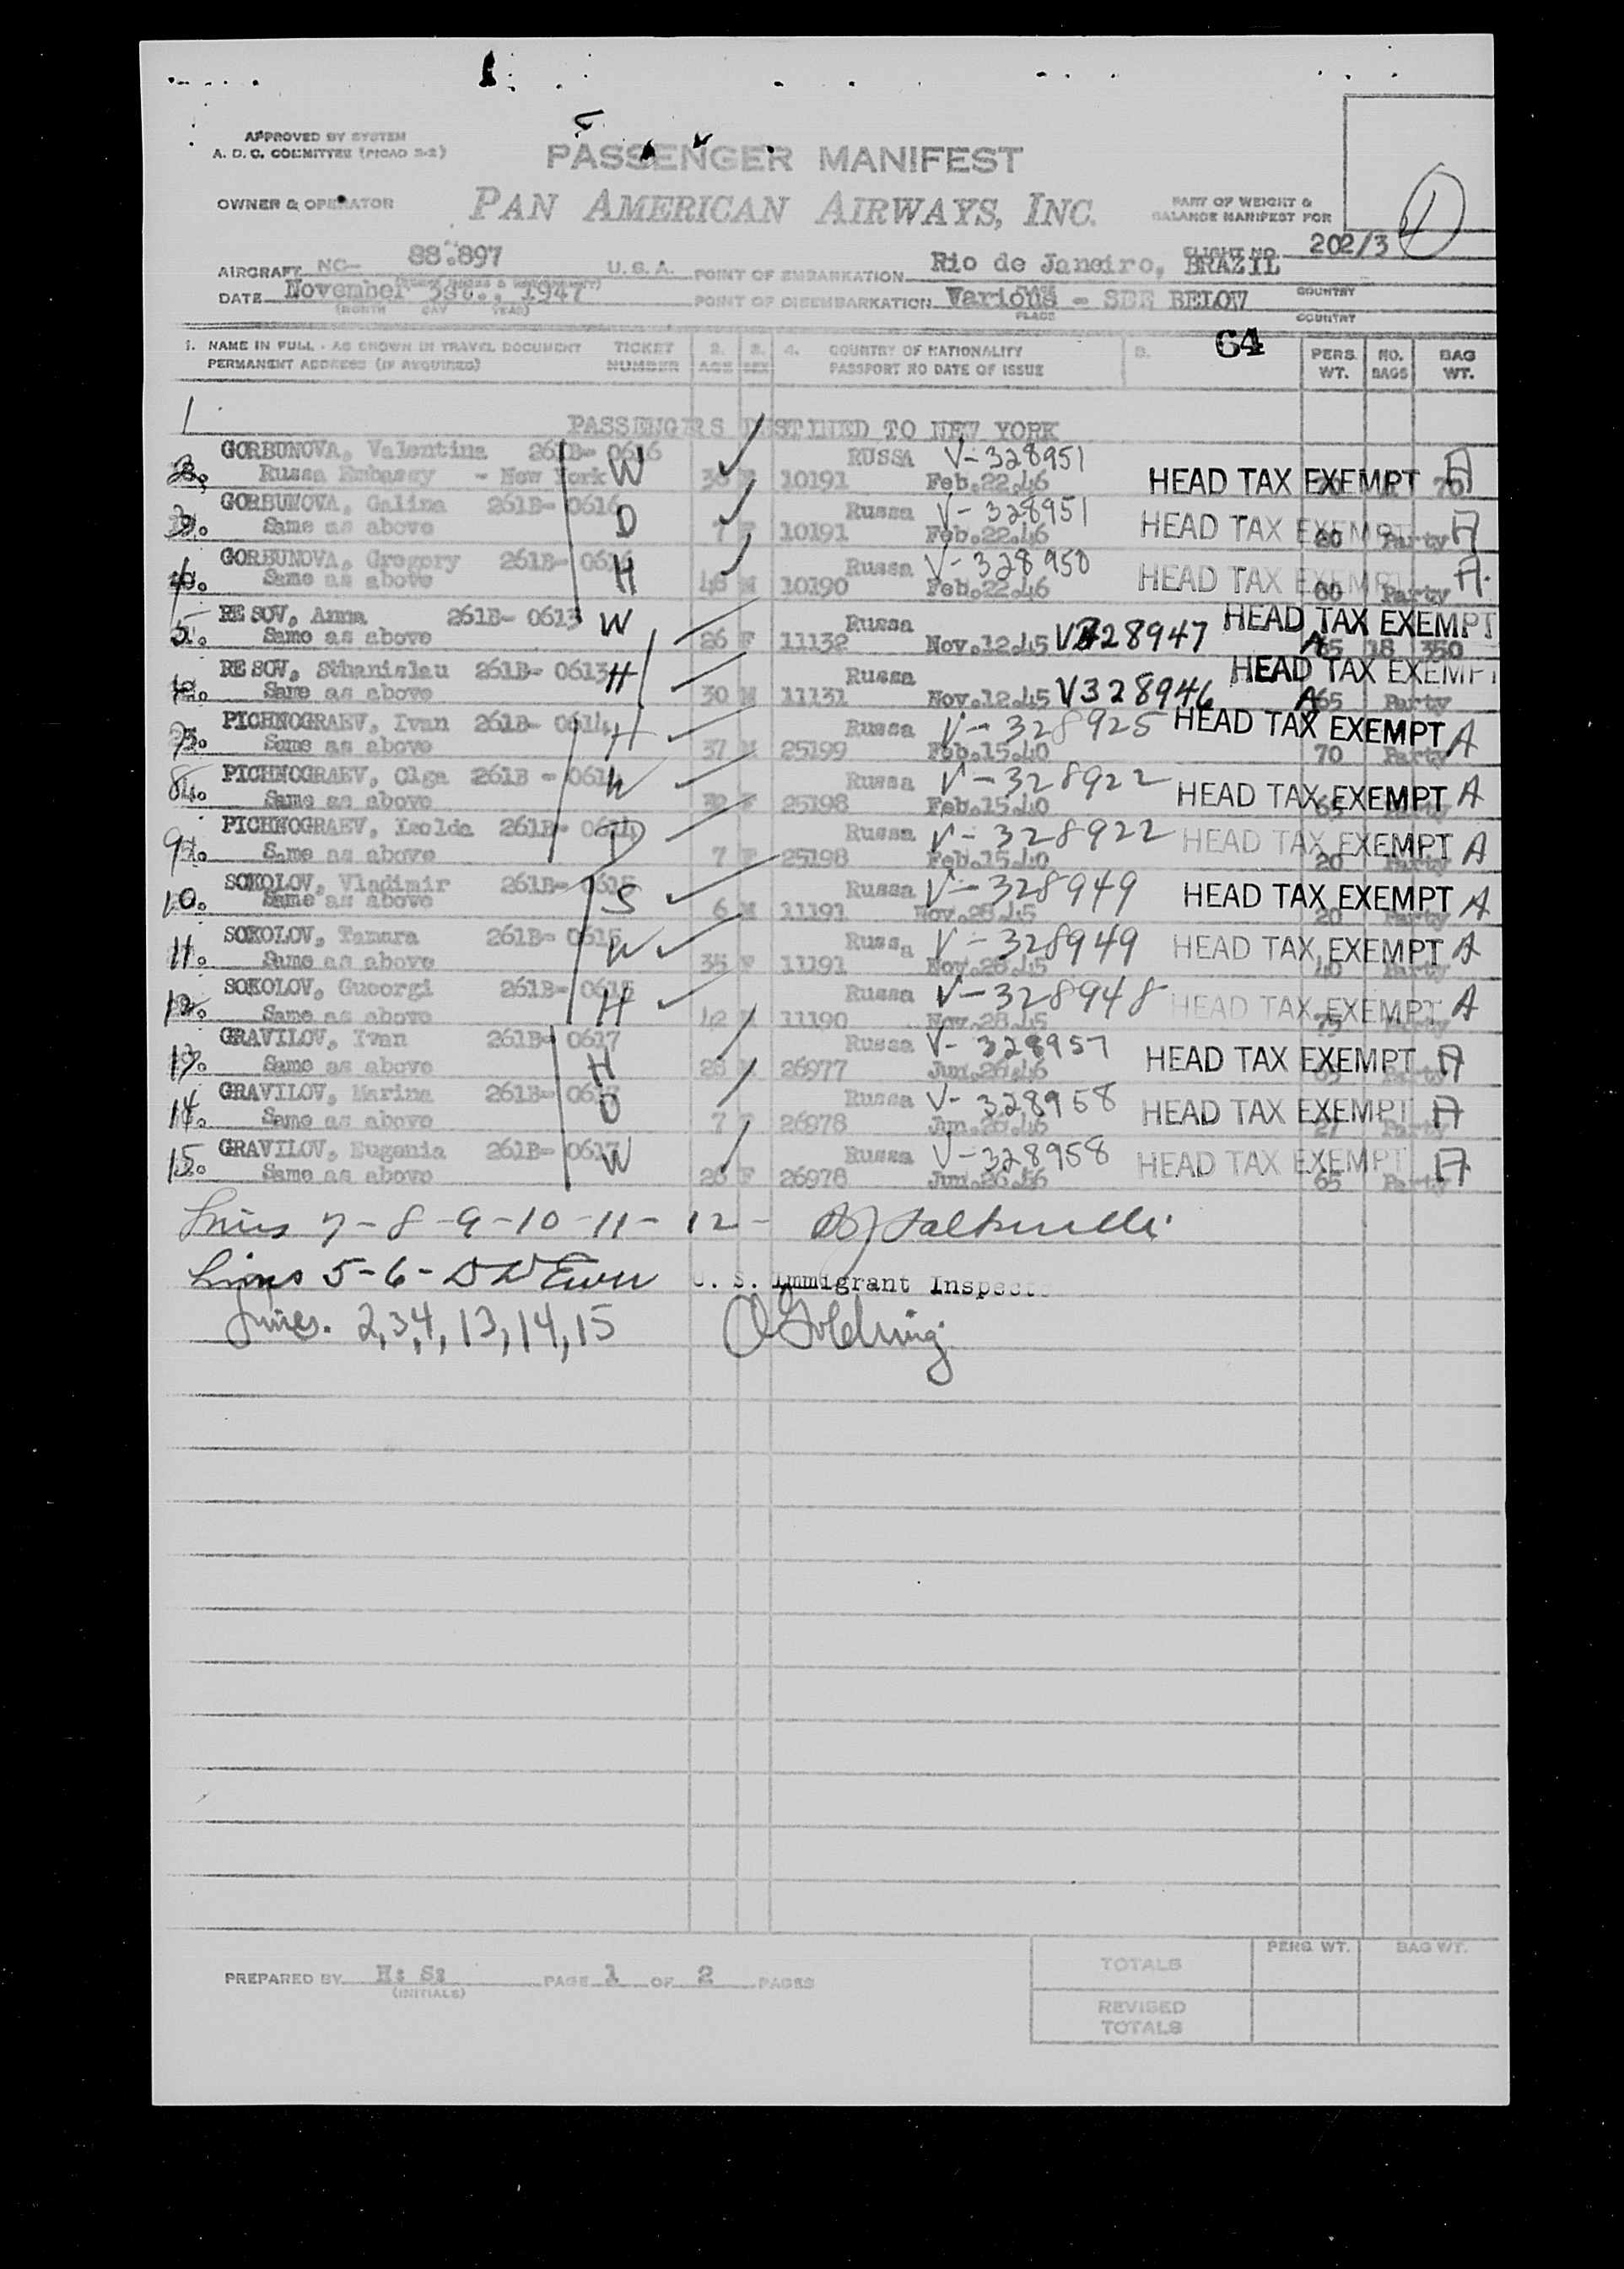 APPROVED BY SYSTEM
A. D. C. COMMITTEE (PICAO S-2)
PASSENGER MANIFEST
OWNER & OPERATOR
PAN AMERICAN AIRWAYS, INC.
PART OF WEIGHT &
BALANCE MANIFEST FOR
FLIGHT NO. 202/3
AIRCRAFT NC- 88.897 U. S. A. POINT OF EMBARKATION Rio de Janeiro, BRAZIL
DATE November 3st., 1947 POINT OF DISEMBARKATION Various - SEE BELOW
(MONTH DAY YEAR) PLACE COUNTRY
1. NAME IN FULL - AS SHOWN IN TRAVEL DOCUMENT TICKET 2. 3. 4. COUNTRY OF NATIONALITY 5. 64 PERS. NO. BAG
PERMANENT ADDRESS (IF REQUIRED) NUMBER AGE SEX PASSPORT NO DATE OF ISSUE WT. BAGS WT.
1
PASSENGERS DESTINED TO NEW YORK
GORBUNOVA, Valentina 261B- 0616 W RUSSA V-328951
2. Russa Embassy - New York F 10191 Feb.22.46 HEAD TAX EXEMPT A
GORBUNOVA, Galina 261B- 0616 D Russa V-328951
3. Same as above 7 F 10191 Feb.22.46 HEAD TAX EXEMPT 20 Party A
GORBUNOVA, Gregory 261B- 0616 H Russa V-328950
4. Same as above M 10190 Feb.22.46 HEAD TAX EXEMPT Party A
RESOV, Anna 261B- 0613 W Russa HEAD TAX EXEMPT
5. Same as above 26 F 11132 Nov.12.45 V328947 A 65 18 350
RESOV, Sthanislau 261B- 0613 H Russa HEAD TAX EXEMPT
6. Same as above 30 M 11131 Nov.12.45 V328946 A 65 Party
PICHNOGRAEV, Ivan 261B- 0614 H Russa V-328925 HEAD TAX EXEMPT A
7. Same as above 37 M 25199 Feb.15.40 70 Party
PICHNOGRAEV, Olga 261B - 0614 W Russa V-328922
8. Same as above F 25198 Feb.15.40 HEAD TAX EXEMPT 65 Party A
PICHNOGRAEV, Isolda 261B- 0614 D Russa V-328922
9. Same as above 7 F 25198 Feb.15.40 HEAD TAX EXEMPT 20 Party A
SOKOLOV, Vladimir 261B- 0615 S Russa V-328949
10. Same as above 6 M 11191 Nov.28.45 HEAD TAX EXEMPT 20 Party A
SOKOLOV, Tamara 261B- 0615 W Russa V-328949
11. Same as above 35 F 11191 Nov.28.45 HEAD TAX EXEMPT Party A
SOKOLOV, Gueorgi 261B- 0615 H Russa V-328948
12. Same as above 42 M 11190 Nov.28.45 HEAD TAX EXEMPT 75 Party A
GRAVILOV, Ivan 261B- 0617 H Russa V-328957
13. Same as above 28 M 26977 Jun.26.46 HEAD TAX EXEMPT 65 Party A
GRAVILOV, Marina 261B- 0617 D Russa V-328958
14. Same as above 7 F 26978 Jun.26.46 HEAD TAX EXEMPT Party A
GRAVILOV, Eugenia 261B- 0617 W Russa V-328958
15. Same as above F 26978 Jun.26.46 HEAD TAX EXEMPT 65 Party A
Lines 7-8-9-10-11-12-
Lines 5-6- U. S. Immigrant Inspect
Lines. 2,3,4,13,14,15 Goldring
PREPARED BY H: S: PAGE 1 OF 2 PAGES
(INITIALS)
PERS. WT. BAG WT.
TOTALS
REVISED
TOTALS